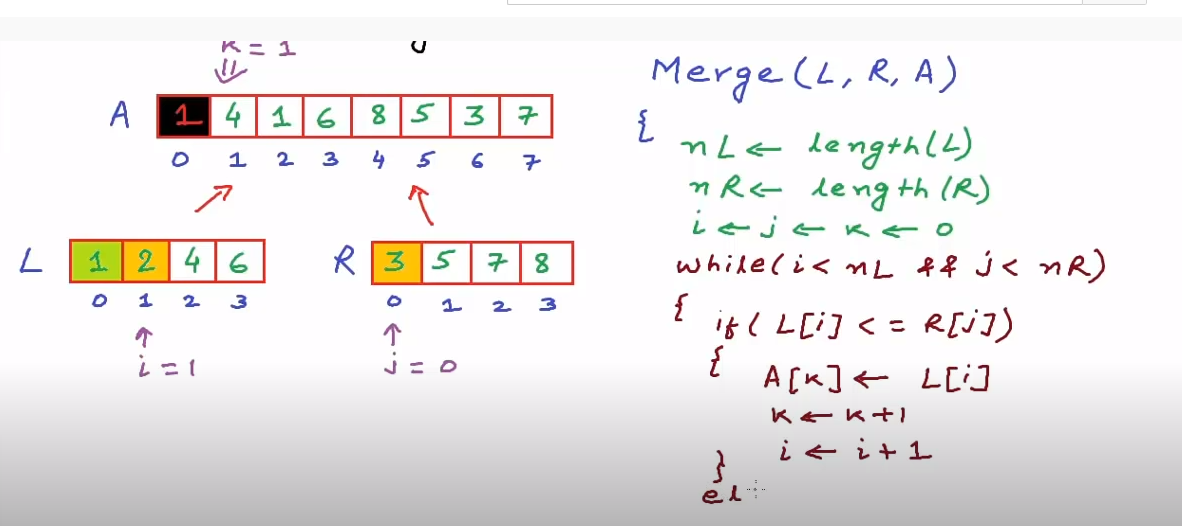 k = 1
A 1 4 1 6 8 5 3 7
0 1 2 3 4 5 6 7
L 1 2 4 6
0 1 2 3
i = 1
R 3 5 7 8
0 1 2 3
j = 0
Merge(L, R, A)
{
nL ← length(L)
nR ← length(R)
i ← j ← k ← 0
while(i < nL && j < nR)
{
if( L[i] <= R[j])
{
A[k] ← L[i]
k ← k+1
i ← i + 1
}
el